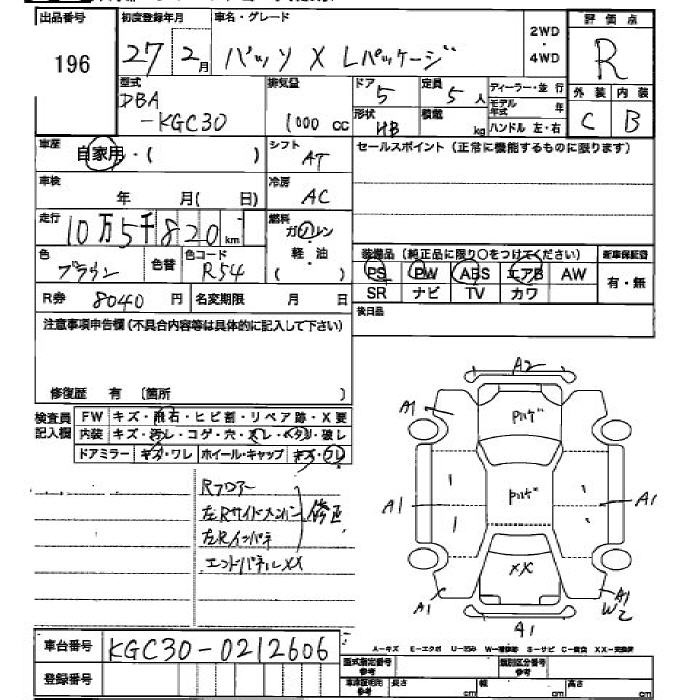 出品番号 初度登録年月 車名・グレード 2WD・4WD 評価点
196 27 2月 パッソ X Lパッケージ R
型式 排気量 ドア 定員 ディーラー・並行 外装 内装
DBA 5 5人 モデル年式 年 C B
-KGC30 1000cc 形状 HB 積載 kg ハンドル 左・右
車歴 自家用・( ) シフト AT セールスポイント(正常に機能するものに限ります)
車検 年 月(日) 冷房 AC
走行 10万5千820km 燃料 ガソリン 軽油 ( )
色 ブラウン 色替 色コード R54
装備品(純正品に限り○をつけてください) 新車保証書
PS PW ABS エアB AW 有・無
SR ナビ TV カワ
R券 8040円 名変期限 月 日 後日品
注意事項申告欄(不具合内容等は具体的に記入して下さい)
修復歴 有 〔箇所 〕
検査員記入欄 FW キズ・飛石・ヒビ割・リペア跡・X要
内装 キズ・汚レ・コゲ・穴・スレ・ヘタリ・破レ
ドアミラー キズ・ワレ ホイール・キャップ キズ・ワレ
Rフロアー
左Rサイドメンバー 修正
左Rインパネ
エンドパネルXX
A2
A1
Pハゲ
A1 Pハゲ A1
XX
A1 A1
W2
A1
車台番号 KGC30-0212606
A-キズ E-エクボ U-凹み W-補修跡 S-サビ C-腐食 XX-交換済
登録番号
型式指定番号 参考 類別区分番号 参考
車庫証明用 参考 長さ cm 幅 cm 高さ cm